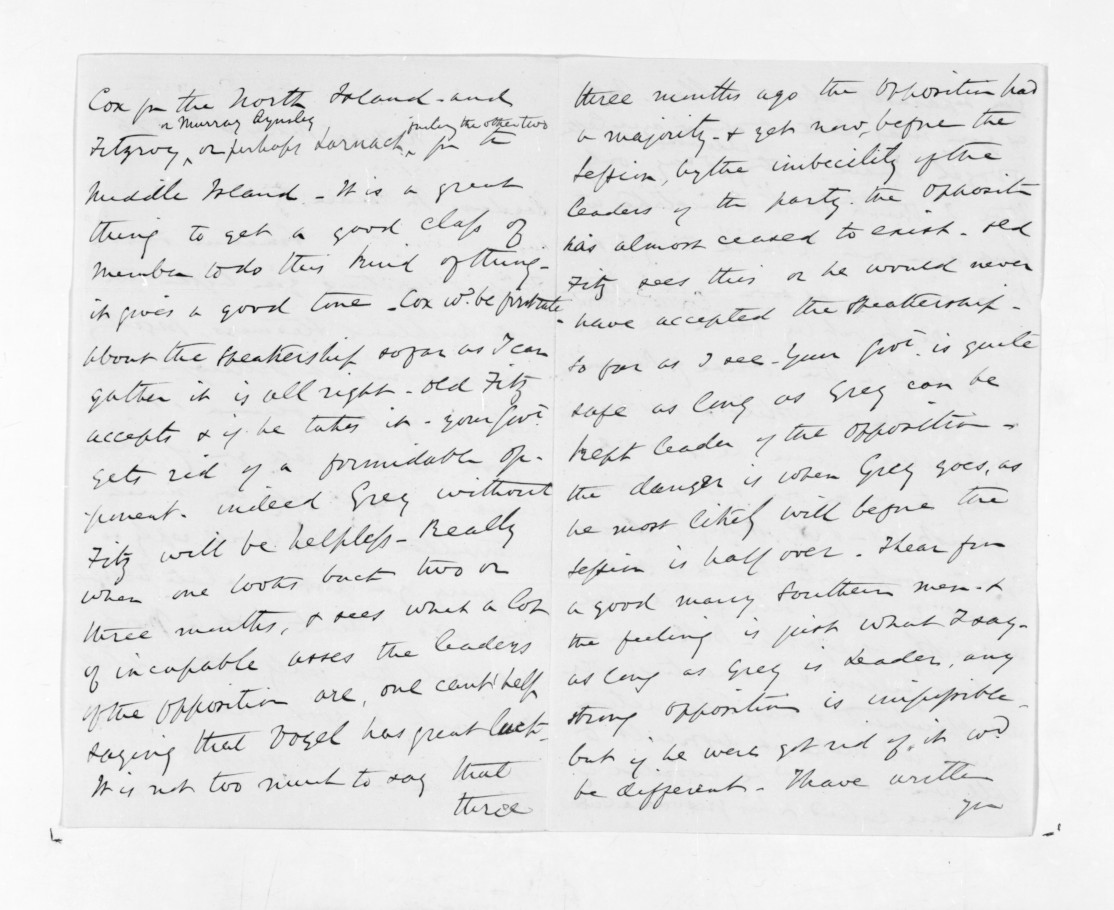 Cox for the North Island - and
or Murray Aynsley
failing the other two
Fitzroy, or perhaps Larnach, for the
Middle Island - It is a great
thing to get a good class of
member to do this kind of thing -
it gives a good tone - Cox wd. be firstrate -
about the Speakership so far as I can
gather it is all right - old Fitz
accepts & if he takes it - your Govt.
gets rid of a formidable op-
ponent - indeed Grey without
Fitz will be helpless - Really
when one looks back two or
three months, & sees what a lot
of incapable asses the leaders
of the Opposition are, one can't help
saying that Vogel has great luck -
It is not too much to say that
three
three months ago the Opposition had
a majority - & yet now, before the
Session, by the imbecility of the
leaders of the party - the opposition
has almost ceased to exist - old
Fitz sees this or he would never
have accepted the Speakership -
So far as I see - your Govt. is quite
safe as long as Grey can be
kept leader of the opposition -
the danger is when Grey goes, as
he most likely will before the
Session is half over - I hear from
a good many Southern men - &
the feeling is just what I say -
as long as Grey is Leader, any
strong opposition is impossible -
but if he were got rid of, it wd.
be different - I have written
you